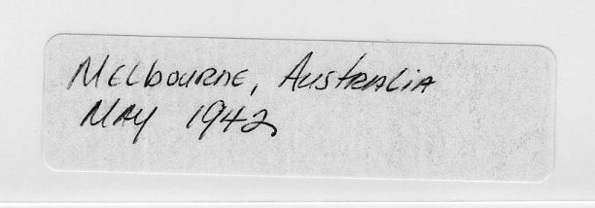 Melbourne, Australia
May 1942